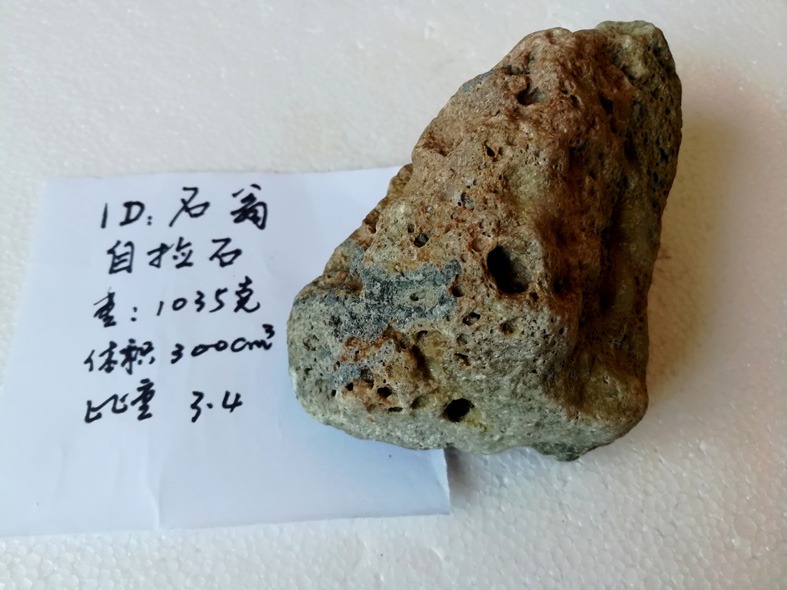 ID：石翁
自捡石
重：1035克
体积 300cm³
比重 3.4